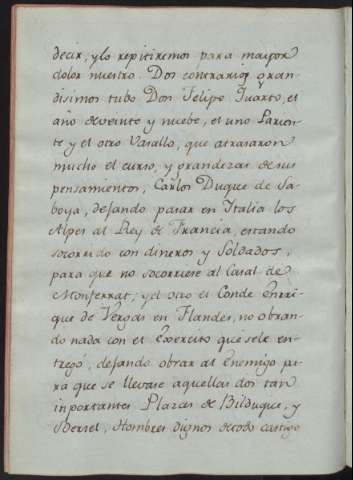 decir, y lo repitiremos para maior
dolor nuestro. Dos contrarios gran-
disimos tubo Don Felipe Quarto, el
año de veinte y nuebe, el uno Parien-
te y el otro Vasallo, que atrasaron
mucho el curso, y grandezas de sus
pensamientos, Carlos Duque de Sa-
boya, dejando pasar en Italia los
Alpes al Rey de Francia, estando
socorrido con dineros y Soldados,
para que no socorriese al Casal de
Monferrat; y el otro el Conde Enrri-
que de Vergas en Flandes, no obran-
do nada con el Exercito que se le en-
tregó, dejando obrar al Enemigo pa-
ra que se llevase aquellas dos tan
inportantes Plazas de Bilduque, y
Besel, Hombres dignos de todo castigo